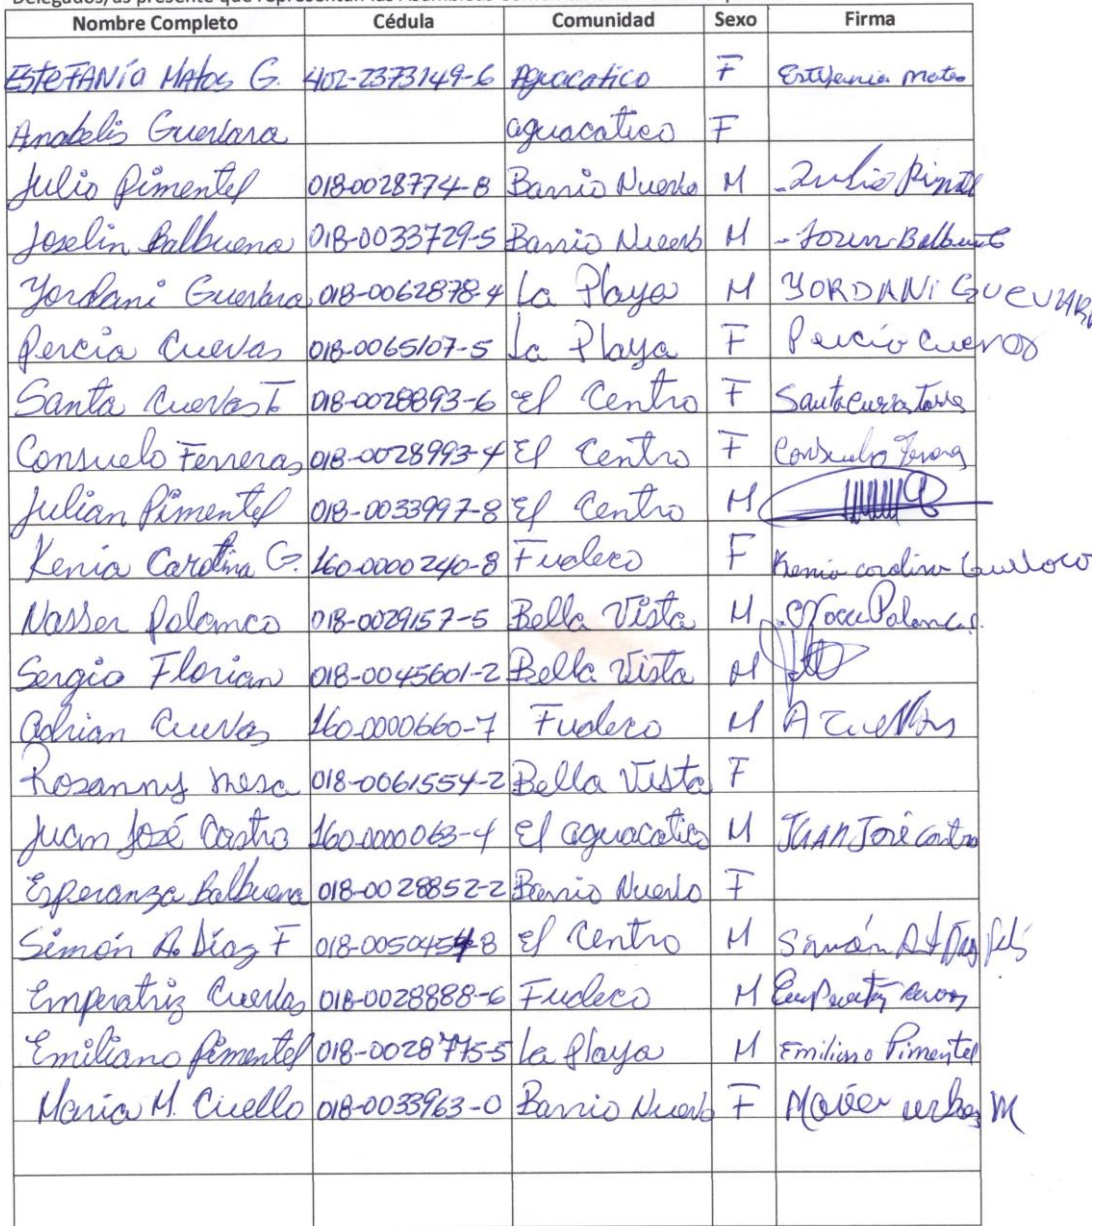 Nombre Completo Cédula Comunidad Sexo Firma
EsteFANía Matos G. 402-2373149-6 Aguacatico F Estefania matos
Anabelis Guevara aguacatico F
Julio Pimentel 018-0028774-8 Barrio Nuevo M Julio Pimtel
Joselin Balbuena 018-0033729-5 Barrio Nuevo M
Yordani Guevara 018-0062878-4 La Playa M YORDANi GUEVARA
Percia Cuevas 018-0065107-5 La Playa F Percia Cuevas
Santa Cuevas F 018-0028893-6 El Centro F Santa Cuevas
Consuelo Ferreras 018-0028993-4 El Centro F Consuelo
Julian Pimentel 018-0033997-8 El Centro M
Kenia Carolina G. 160-0000240-8 Fudeco F Kenia carolina
Nasser Polanco 018-0029157-5 Bella Vista M Polanco
Sergio Florian 018-0045601-2 Bella Vista M
Adrian Cuevas 160-0000660-7 Fudeco M A Cuevas
Rosanny mesa 018-0061554-2 Bella Vista F
Juan José Castro 160-0000063-4 El aguacatico M JUAN José castro
Esperanza Balbuena 018-0028852-2 Barrio Nuevo F
Simón A. Díaz F 018-0050454-8 El Centro M Simón
Emperatriz Cuevas 018-0028888-6 Fudeco M
Emiliano Pimentel 018-0028775-5 La Playa M Emiliano Pimentel
Maria M. Cuello 018-0033963-0 Barrio Nuevo F